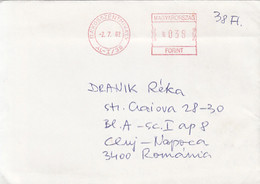 38 Ft.
MAGYARORSZÁG
035
FORINT
DRANIK Réka
str. Craiova 28-30
Bl. A - sc. I ap 8
Cluj - Napoca
3400 România